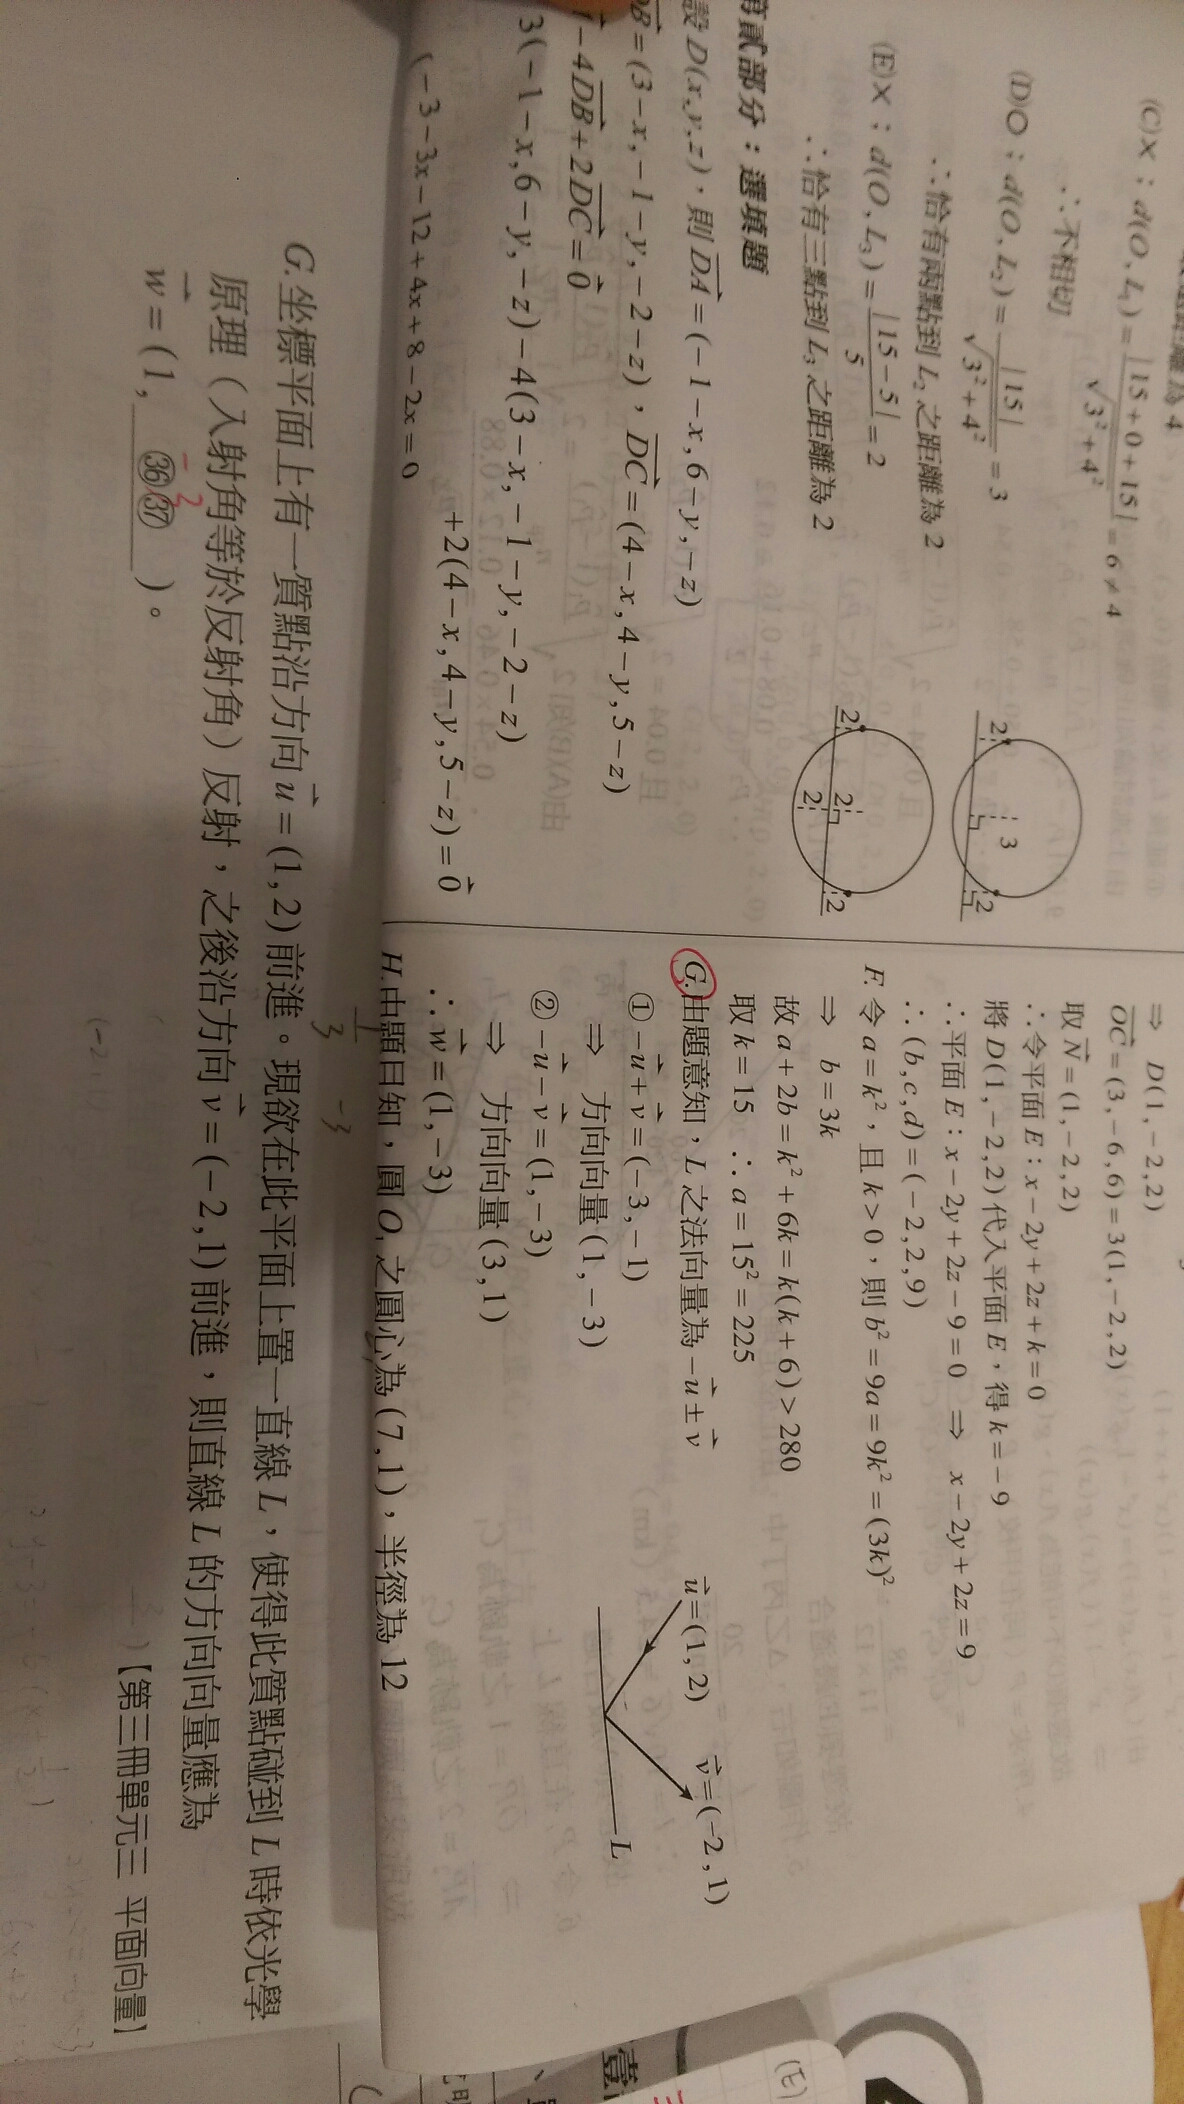 (C)X：d(O, L₁) = |15+0+15| / √(3²+4²) = 6 ≠ 4
∴不相切
(D)O：d(O, L₂) = |15| / √(3²+4²) = 3
∴恰有兩點到 L₂ 之距離為 2
3
2
2
(E)X：d(O, L₃) = |15-5| / 5 = 2
∴恰有三點到 L₃ 之距離為 2
2
2
2
2
貳部分：選填題
設 D(x, y, z)，則 DA→ = (-1-x, 6-y, -z)
DB→ = (3-x, -1-y, -2-z)，DC→ = (4-x, 4-y, 5-z)
-4DB→ + 2DC→ = 0→
3(-1-x, 6-y, -z) - 4(3-x, -1-y, -2-z)
+2(4-x, 4-y, 5-z) = 0→
(-3-3x-12+4x+8-2x=0
⇒ D(1, -2, 2)
OC→ = (3, -6, 6) = 3(1, -2, 2)
取 N→ = (1, -2, 2)
∴令平面 E：x-2y+2z+k=0
將 D(1, -2, 2) 代入平面 E，得 k=-9
∴平面 E：x-2y+2z-9=0 ⇒ x-2y+2z=9
∴(b, c, d) = (-2, 2, 9)
F. 令 a=k²，且 k>0，則 b²=9a=9k²=(3k)²
⇒ b=3k
故 a+2b=k²+6k=k(k+6)>280
取 k=15 ∴a=15²=225
G. 由題意知，L 之法向量為 -u→ ± v→
① -u→+v→ = (-3, -1)
⇒ 方向向量 (1, -3)
② -u→-v→ = (1, -3)
⇒ 方向向量 (3, 1)
∴w→ = (1, -3)
u→=(1, 2)
v→=(-2, 1)
L
H. 由題目知，圓 O₁ 之圓心為 (7, 1)，半徑為 12
1
3
-3
G. 坐標平面上有一質點沿方向 u→ = (1, 2) 前進。現欲在此平面上置一直線 L，使得此質點碰到 L 時依光學
原理（入射角等於反射角）反射，之後沿方向 v→ = (-2, 1) 前進，則直線 L 的方向向量應為
w→ = (1, ㊱㊲ )。
【第三冊單元三 平面向量】